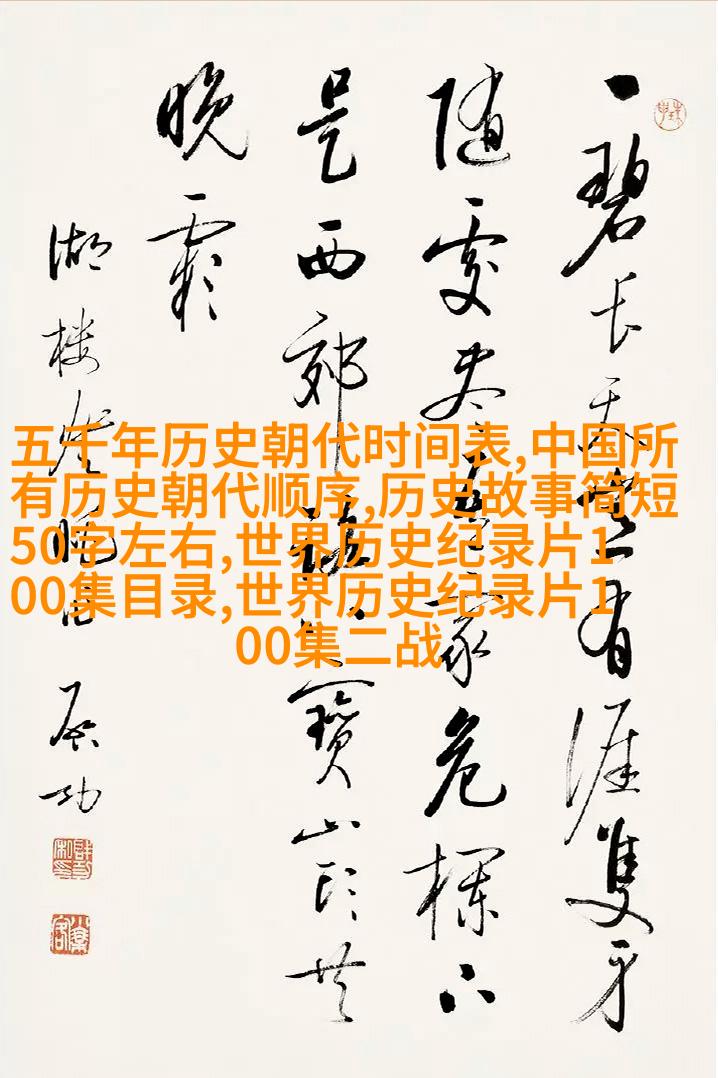 一碧長天有涯雙
随處家危欄
是西郊寶山共
晚霞
湖樓晚
启功
五千年历史朝代时间表,中国所
有历史朝代顺序,历史故事简短
50字左右,世界历史纪录片1
00集目录,世界历史纪录片1
00集二战